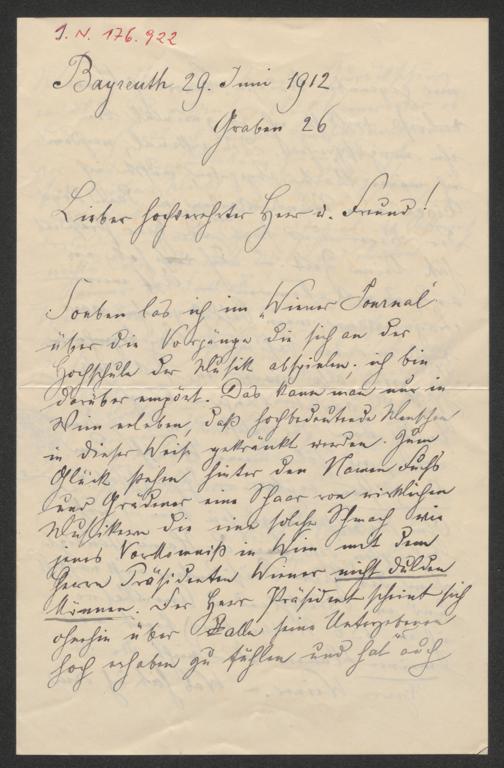 I. N. 176.922
Bayreuth 29. Juni 1912
Graben 26
Lieber hochverehrter Herr u. Freund!
Soeben las ich im „Wiener Journal“
über die Vorgänge die sich an der
Hochschule der Musik abspielen; ich bin
darüber empört. Das kann man nur in
Wien erleben, daß hochbedeutende Menschen
in dieser Weise gekränkt werden. Zum
Glück stehen hinter den Namen Fuchs
und Grädener eine Schaar von wirklichen
Musikern die eine solche Schmach wie
jenes Vorkomniß in Wien mit dem
Herrn Präsidenten Wiener nicht dulden
können. Der Herr Präsident scheint sich
ohnehin über alle seine Untergebenen
hoch erhaben zu fühlen und hat auch